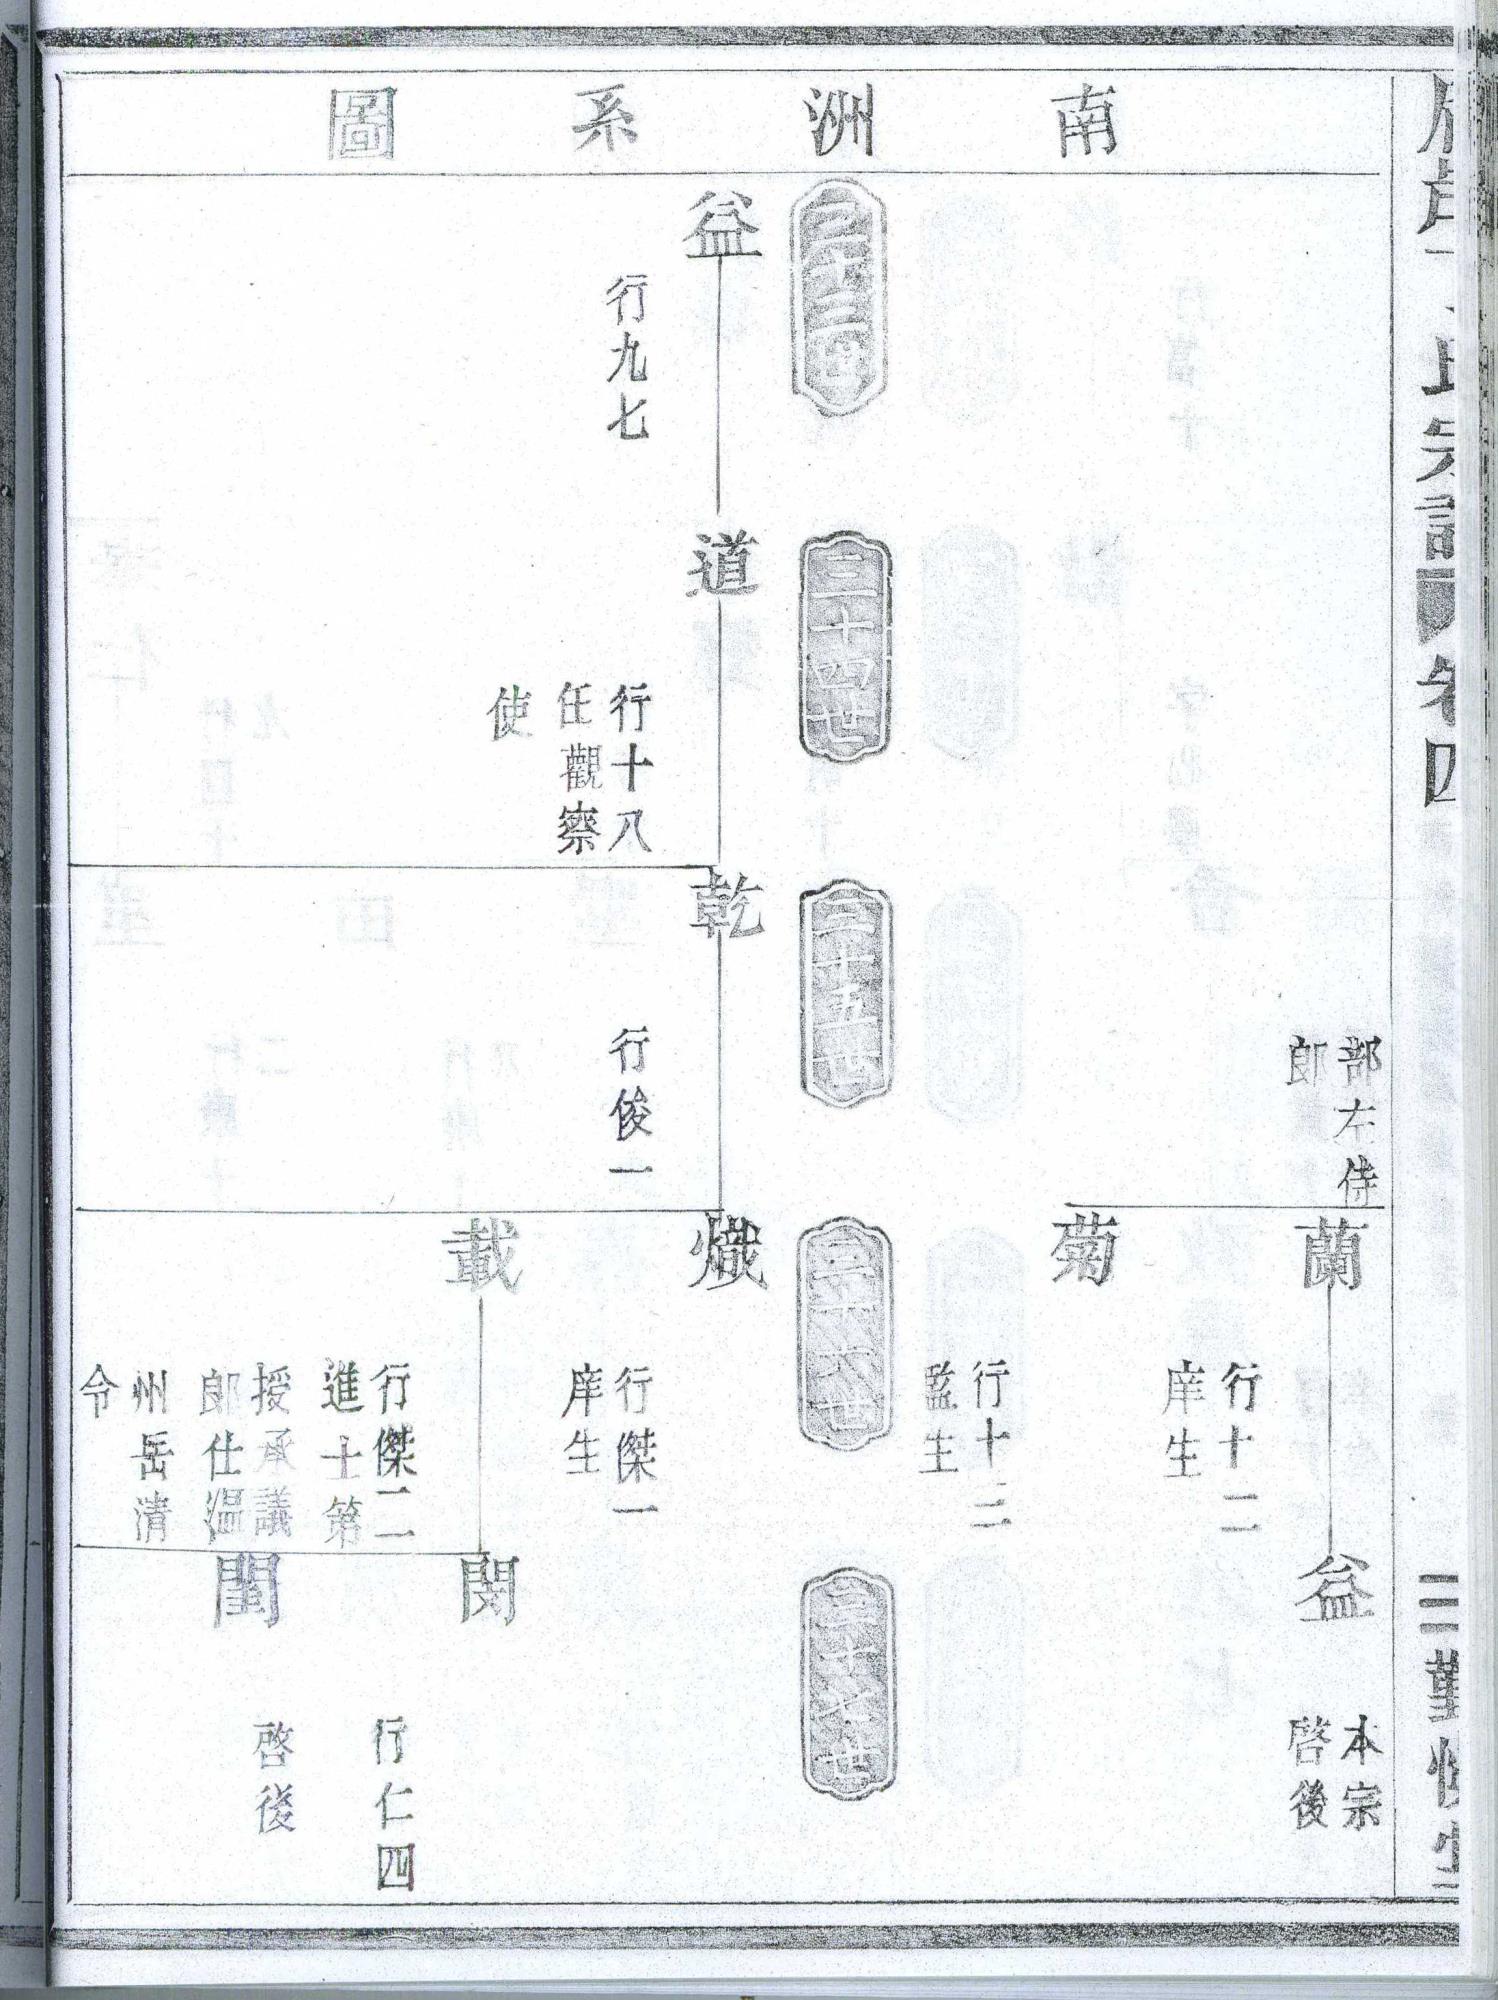 南洲系圖
氏宗譜
卷四
三
勤
部左侍
郎
蘭
行十二
庠生
益
本宗
啓後
菊
行十三
監生
三十三世
三十四世
三十五世
三十六世
三十七世
益
行九七
道
行十八
任觀察
使
乾
行俊一
熾
行傑一
庠生
載
行傑二
進士第
授承議
郎仕溫
州岳清
令
閔
行仁四
閨
啓後